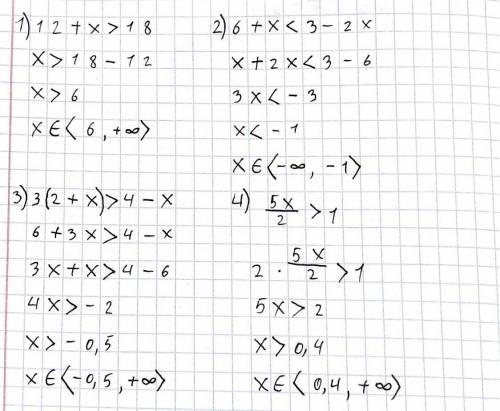 1) 12 + x > 18
x > 18 - 12
x > 6
x ∈ ⟨6, +∞⟩
2) 6 + x < 3 - 2x
x + 2x < 3 - 6
3x < -3
x < -1
x ∈ ⟨-∞, -1⟩
3) 3(2 + x) > 4 - x
6 + 3x > 4 - x
3x + x > 4 - 6
4x > -2
x > -0,5
x ∈ ⟨-0,5, +∞⟩
4) 5x/2 > 1
2 · 5x/2 > 1
5x > 2
x > 0,4
x ∈ ⟨0,4, +∞⟩